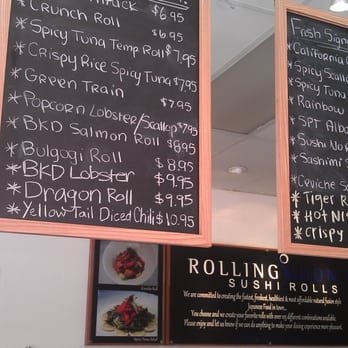 $6.95
* Crunch Roll $6.95
* Spicy Tuna Temp Roll $7.95
* Crispy Rice Spicy Tuna $7.95
* Green Train $7.95
* Popcorn Lobster/Scallop $7.95
* BKD Salmon Roll $8.95
* Bulgogi Roll $8.95
* BKD Lobster $9.95
* Dragon Roll $9.95
* Yellow Tail Diced Chili $10.95
Fresh
* California
* Spicy
* Spicy Tuna
* Rainbow
* SPT
* Sushi
* Sashimi
* Ceviche
* Tiger
* HOT
* Crispy
ROLLING
SUSHI ROLLS
We are committed to creating the fastest, freshest, healthiest & most affordable natural fusion style
Japanese Food in town...
You choose and we create your favorite rolls with over different combinations available.
Please enjoy and let us know if we can do anything to make your dining experience more pleasant.